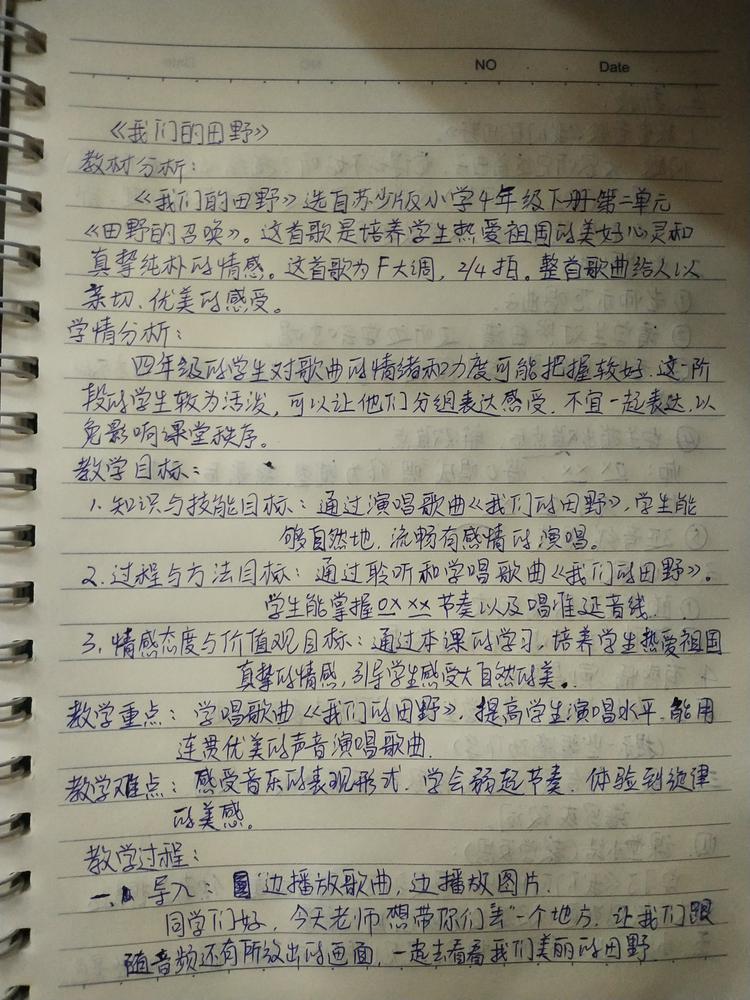 NO Date
《我们的田野》
教材分析:
《我们的田野》选自苏少版小学4年级下册第二单元
《田野的召唤》。这首歌是培养学生热爱祖国的美好心灵和
真挚纯朴的情感。这首歌为F大调，2/4拍。整首歌曲给人以
亲切、优美的感受。
学情分析:
四年级的学生对歌曲的情绪和力度可能把握较好.这一阶
段的学生较为活泼，可以让他们分组表达感受.不宜一起表达.以
免影响课堂秩序。
教学目标:
1.知识与技能目标：通过演唱歌曲《我们的田野》.学生能
够自然地.流畅有感情的演唱。
2.过程与方法目标：通过聆听和学唱歌曲《我们的田野》。
学生能掌握0X XX节奏以及唱准延音线.
3.情感态度与价值观目标：通过本课的学习.培养学生热爱祖国
真挚的情感，引导学生感受大自然的美.
教学重点：学唱歌曲《我们的田野》.提高学生演唱水平.能用
连贯优美的声音演唱歌曲.
教学难点：感受音乐的表现形式.学会弱起节奏.体验到旋律
的美感。
教学过程:
一、导入：边播放歌曲，边播放图片.
同学们好，今天老师想带你们去一个地方.让我们跟
随音频还有所放出的画面，一起去看看我们美丽的田野